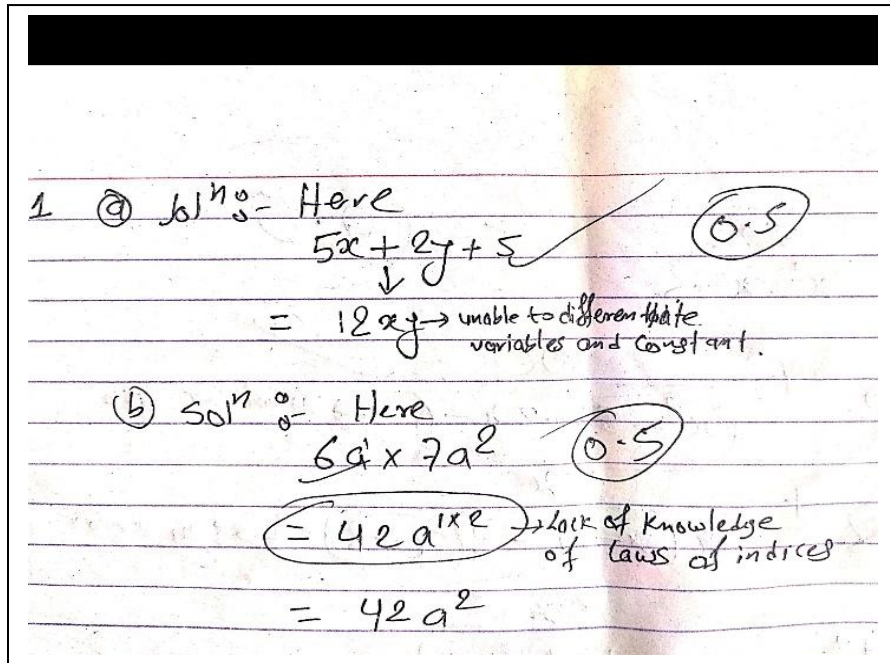 1 ⓐ Solⁿ :- Here
5x + 2y + 5
0.5
↓
= 12xy → unable to differentiate
variables and constant.
ⓑ Solⁿ :- Here
6a¹ × 7a²
0.5
= 42a¹ˣ² → Lack of knowledge
of laws of indices
= 42a²